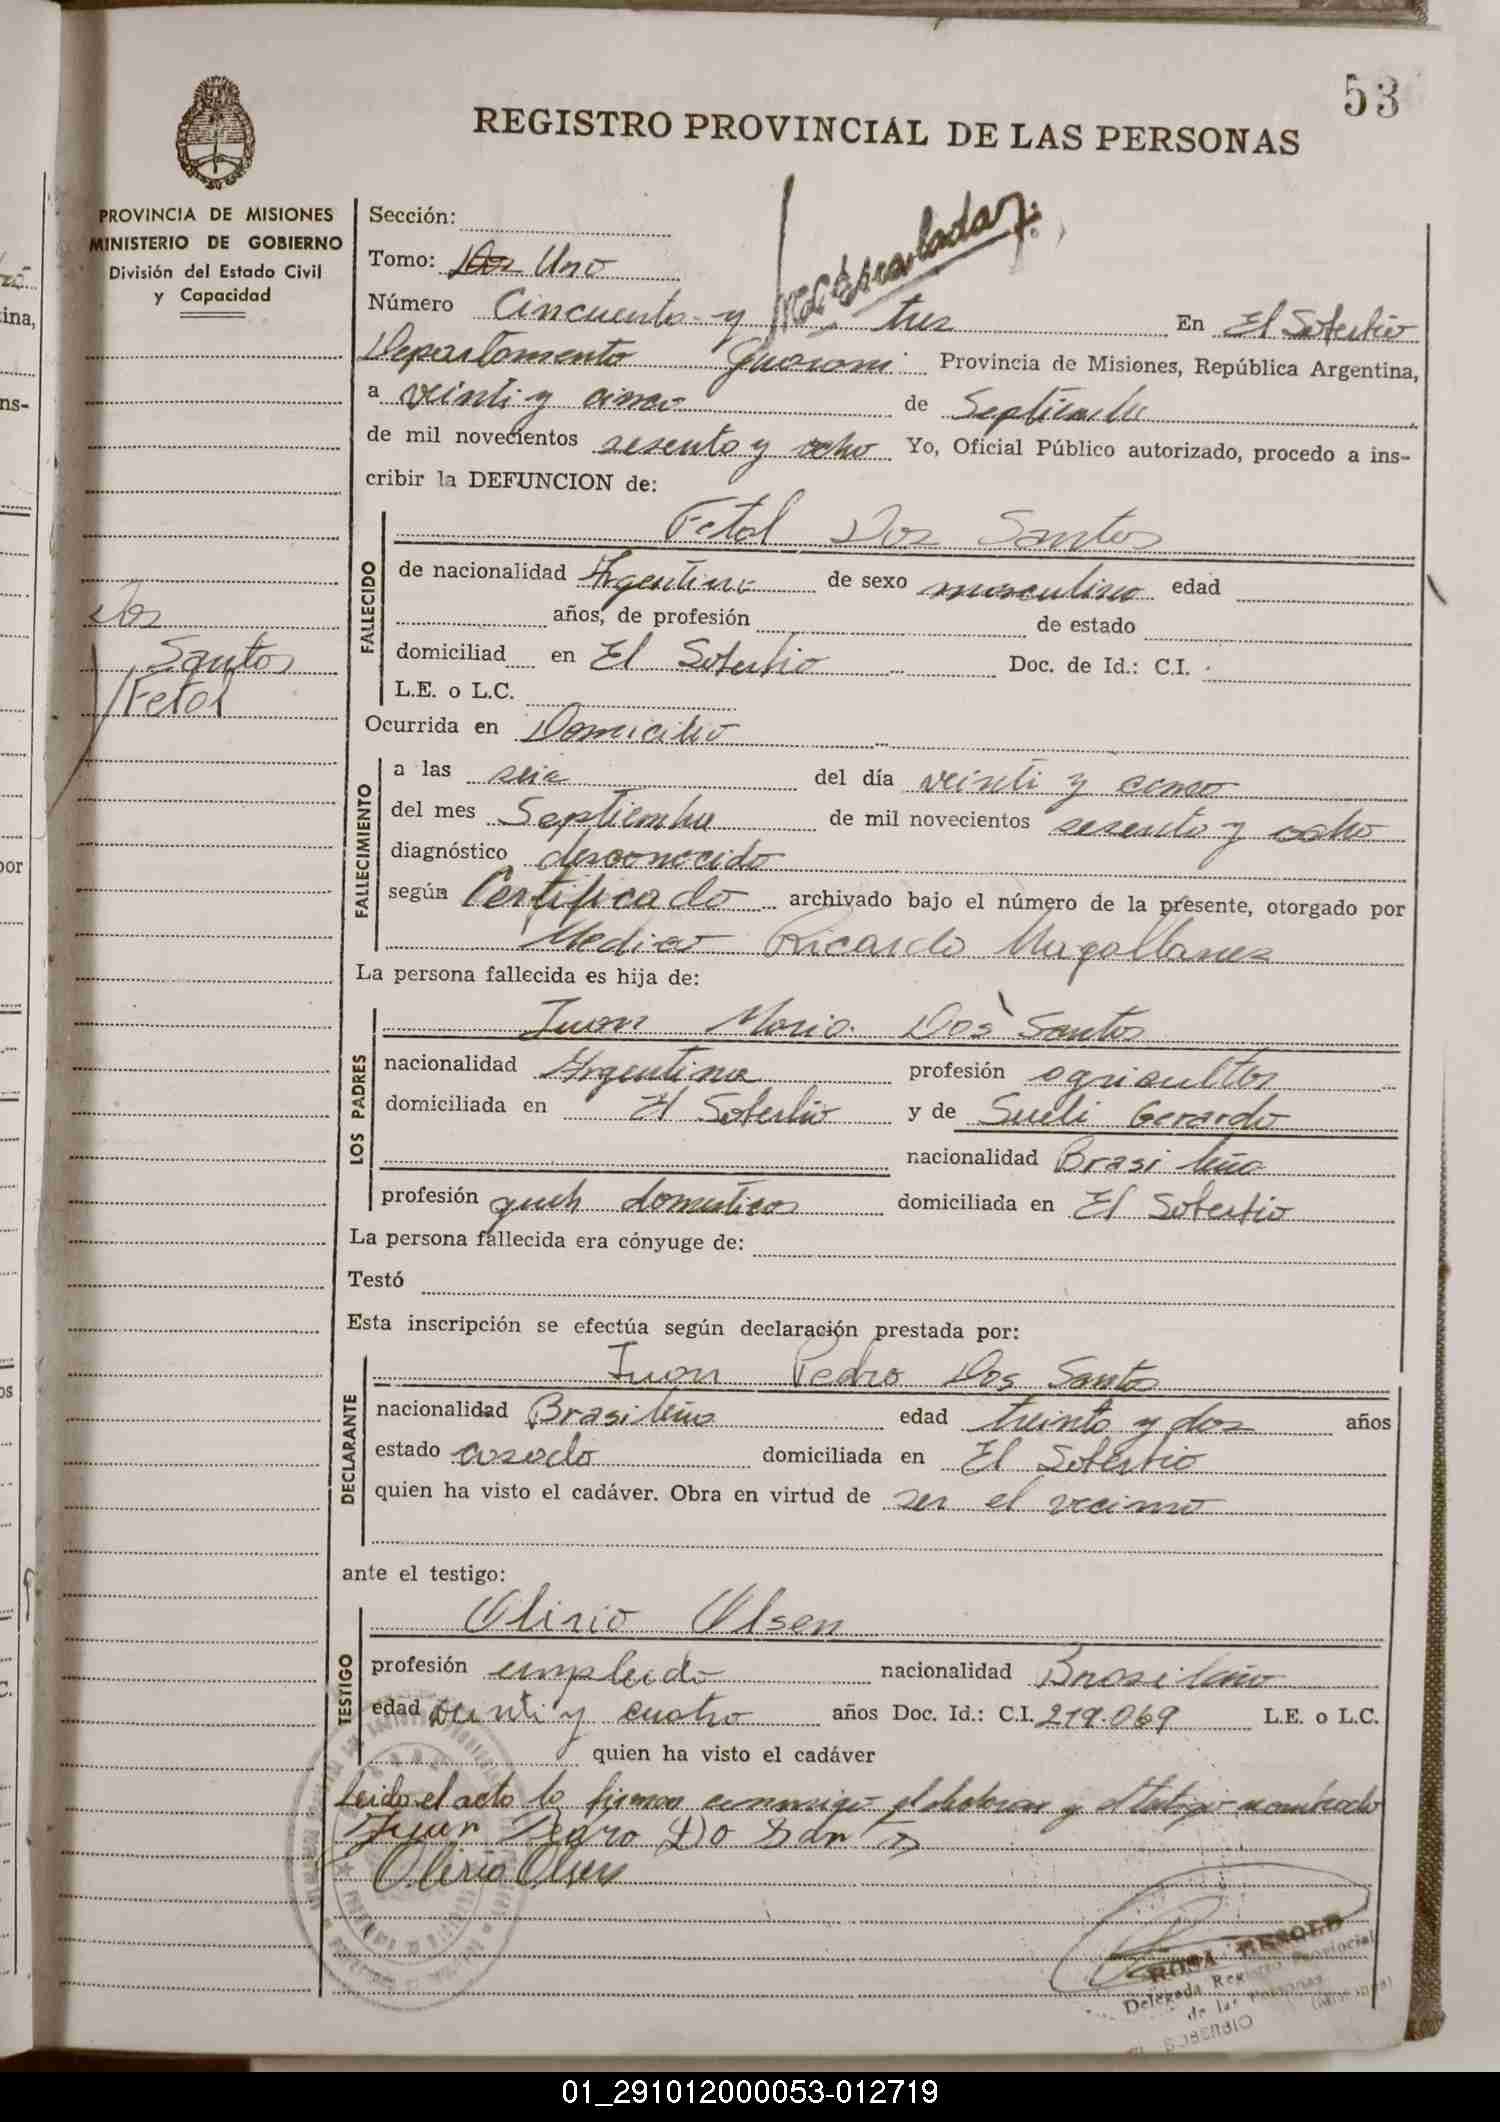 53
REGISTRO PROVINCIAL DE LAS PERSONAS
PROVINCIA DE MISIONES
MINISTERIO DE GOBIERNO
División del Estado Civil
y Capacidad
Sección:
Tomo: Dos Uno
Número Cincuenta y tres En El Soberbio
Departamento Guarani Provincia de Misiones, República Argentina,
a veinti y cinco de Septiembre
de mil novecientos sesenta y ocho Yo, Oficial Público autorizado, procedo a ins-
cribir la DEFUNCION de:
Fetal Dos Santos
FALLECIDO
de nacionalidad Argentina de sexo masculino edad
años, de profesión de estado
domiciliad en El Soberbio Doc. de Id.: C.I.
L.E. o L.C.
Dos
Santos
Fetal
Ocurrida en Domicilio
FALLECIMIENTO
a las seis del día veinti y cinco
del mes Septiembre de mil novecientos sesenta y ocho
diagnóstico desconocido
según Certificado archivado bajo el número de la presente, otorgado por
Medico Ricardo Magallanes
La persona fallecida es hija de:
LOS PADRES
Juan Maria Dos Santos
nacionalidad Argentina profesión agricultor
domiciliada en El Soberbio y de Sueli Gerardo
nacionalidad Brasileña
profesión queh domesticos domiciliada en El Soberbio
La persona fallecida era cónyuge de:
Testó
Esta inscripción se efectúa según declaración prestada por:
DECLARANTE
Juan Pedro Dos Santos
nacionalidad Brasileño edad treinta y dos años
estado casado domiciliada en El Soberbio
quien ha visto el cadáver. Obra en virtud de ser el vecino
ante el testigo:
TESTIGO
Olirio Olsen
profesión empleado nacionalidad Brasileño
edad veinti y cuatro años Doc. Id.: C.I. 219.069 L.E. o L.C.
quien ha visto el cadáver
Leida el acta la firman conmigo el declarar y el testigo nombrado
Juan Pedro Do Santos
Olirio Olsen
ROSA HEROLD
Delegada Registro Provincial
de las Personas
01_291012000053-012719